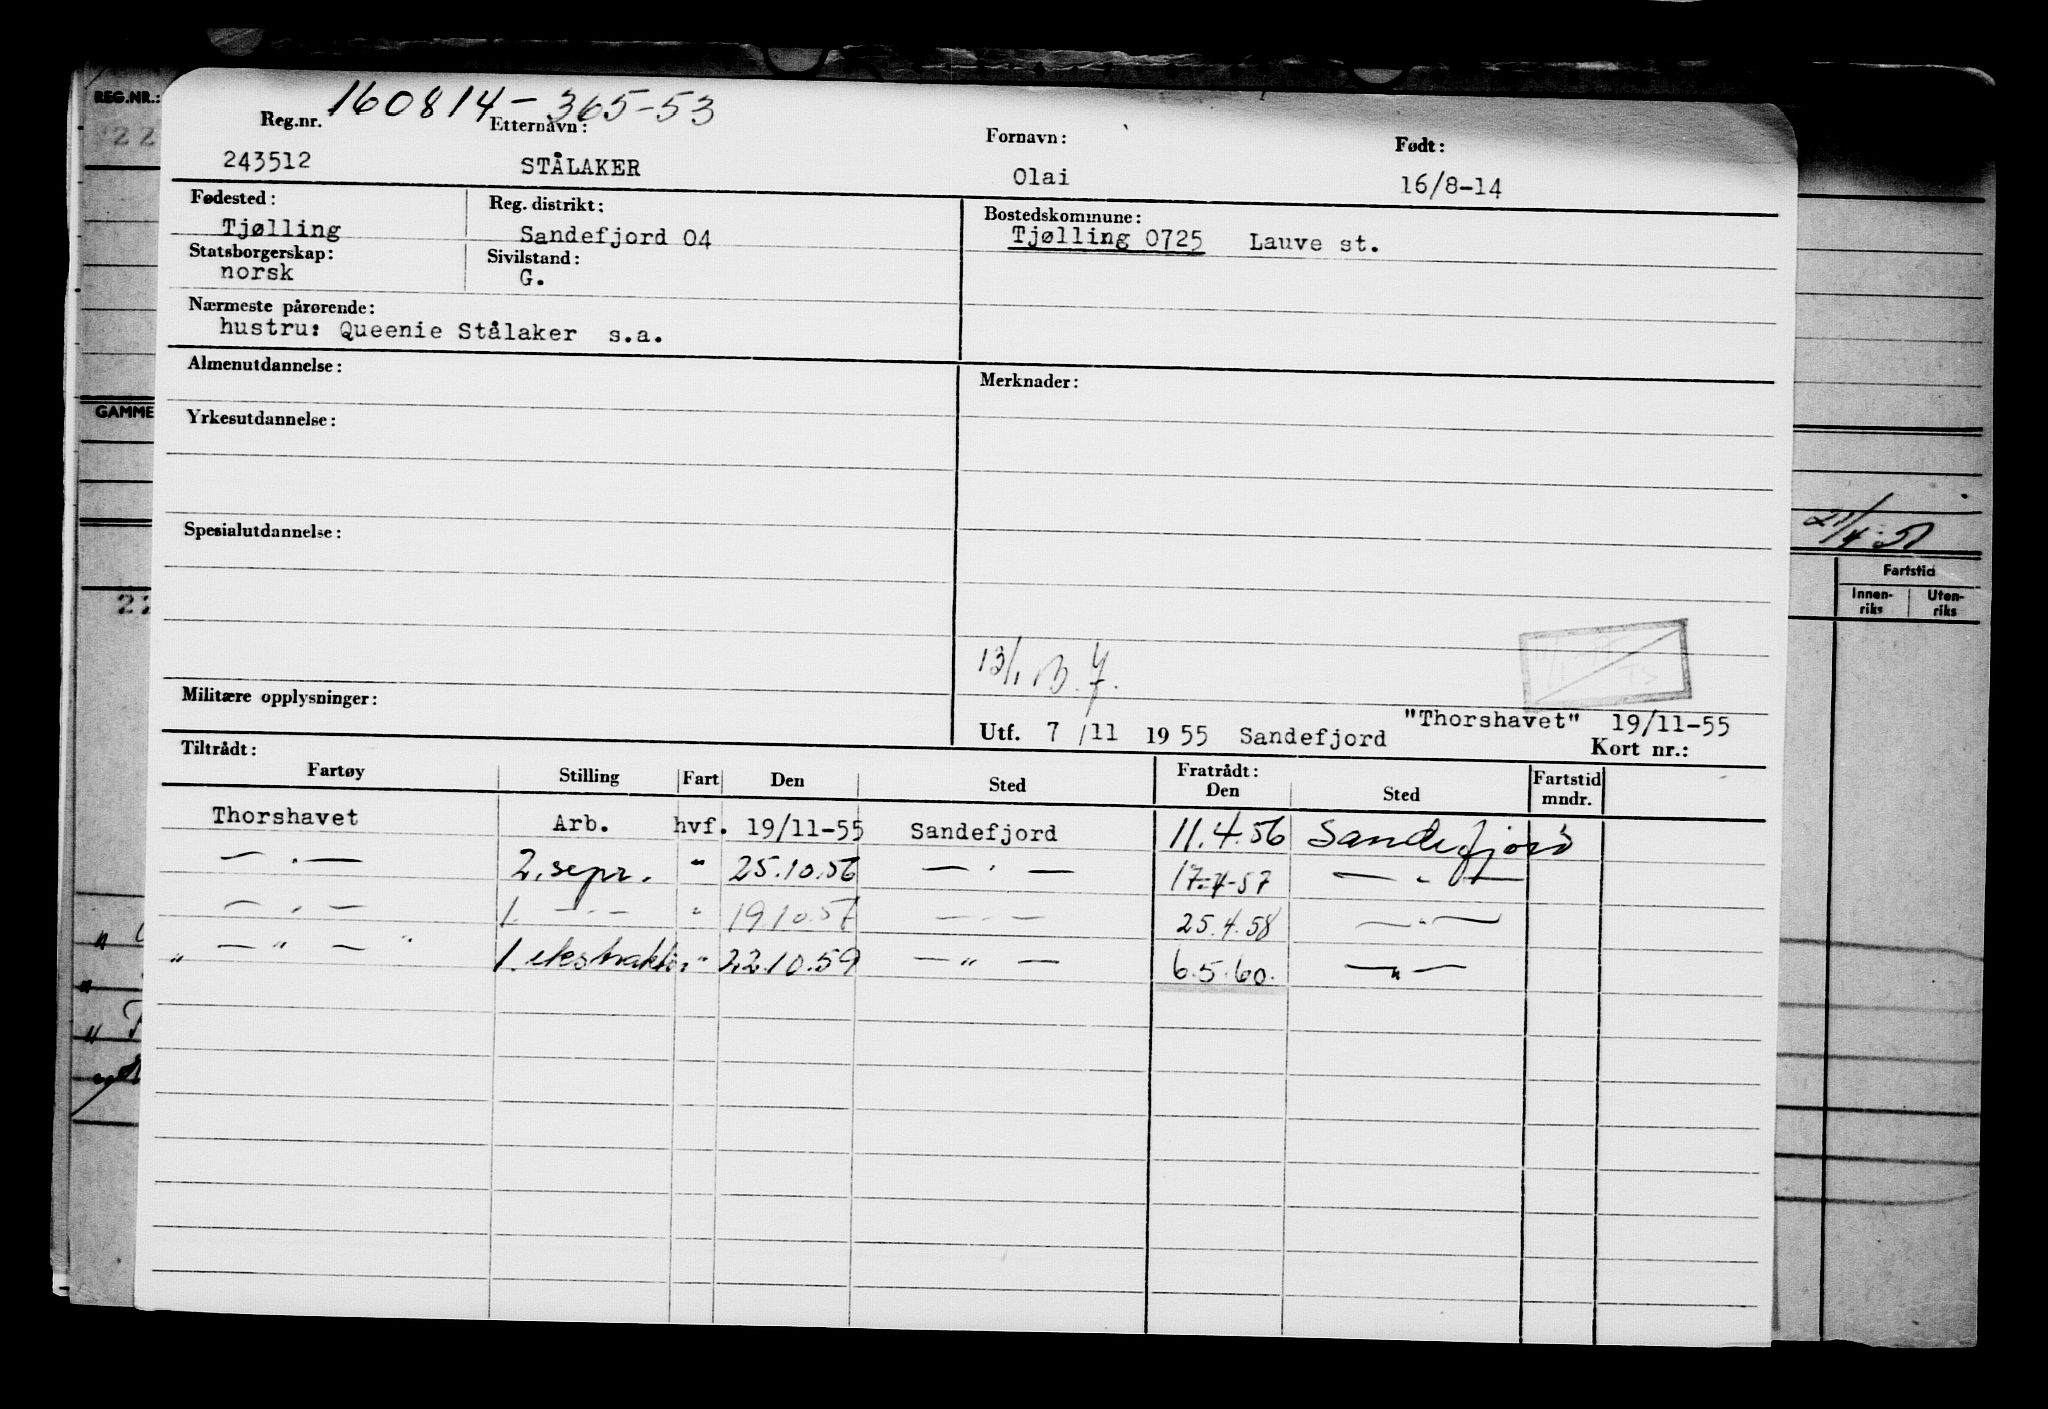 REG.NR.:
160814-365-53
Reg.nr. Etternavn: Fornavn: Født:
243512 STÅLAKER Olai 16/8-14
Fødested: Reg. distrikt: Bostedskommune:
Tjølling Sandefjord 04 Tjølling 0725 Lauve st.
Statsborgerskap: Sivilstand:
norsk G.
Nærmeste pårørende:
hustru: Queenie Stålaker s.a.
Almenutdannelse: Merknader:
GAMME
Yrkesutdannelse:
Spesialutdannelse:
Fartstid
Innen-riks Uten-riks
22
13/1
Militære opplysninger:
"Thorshavet" 19/11-55
Utf. 7/11 1955 Sandefjord
Kort nr.:
Tiltrådt: Fratrådt:
Fartøy Stilling Fart Den Sted Den Sted Fartstid mndr.
Thorshavet Arb. hvf. 19/11-55 Sandefjord 11.4.56 Sandefjord
— . — 2. sepr. " 25.10.56 — " — 17-4-57 — " —
— " — 1. — " — " 19.10.57 — " — 25.4.58 — " —
" — " — " 1. ekstraktø. " 22.10.59 — " — 6.5.60. — " —